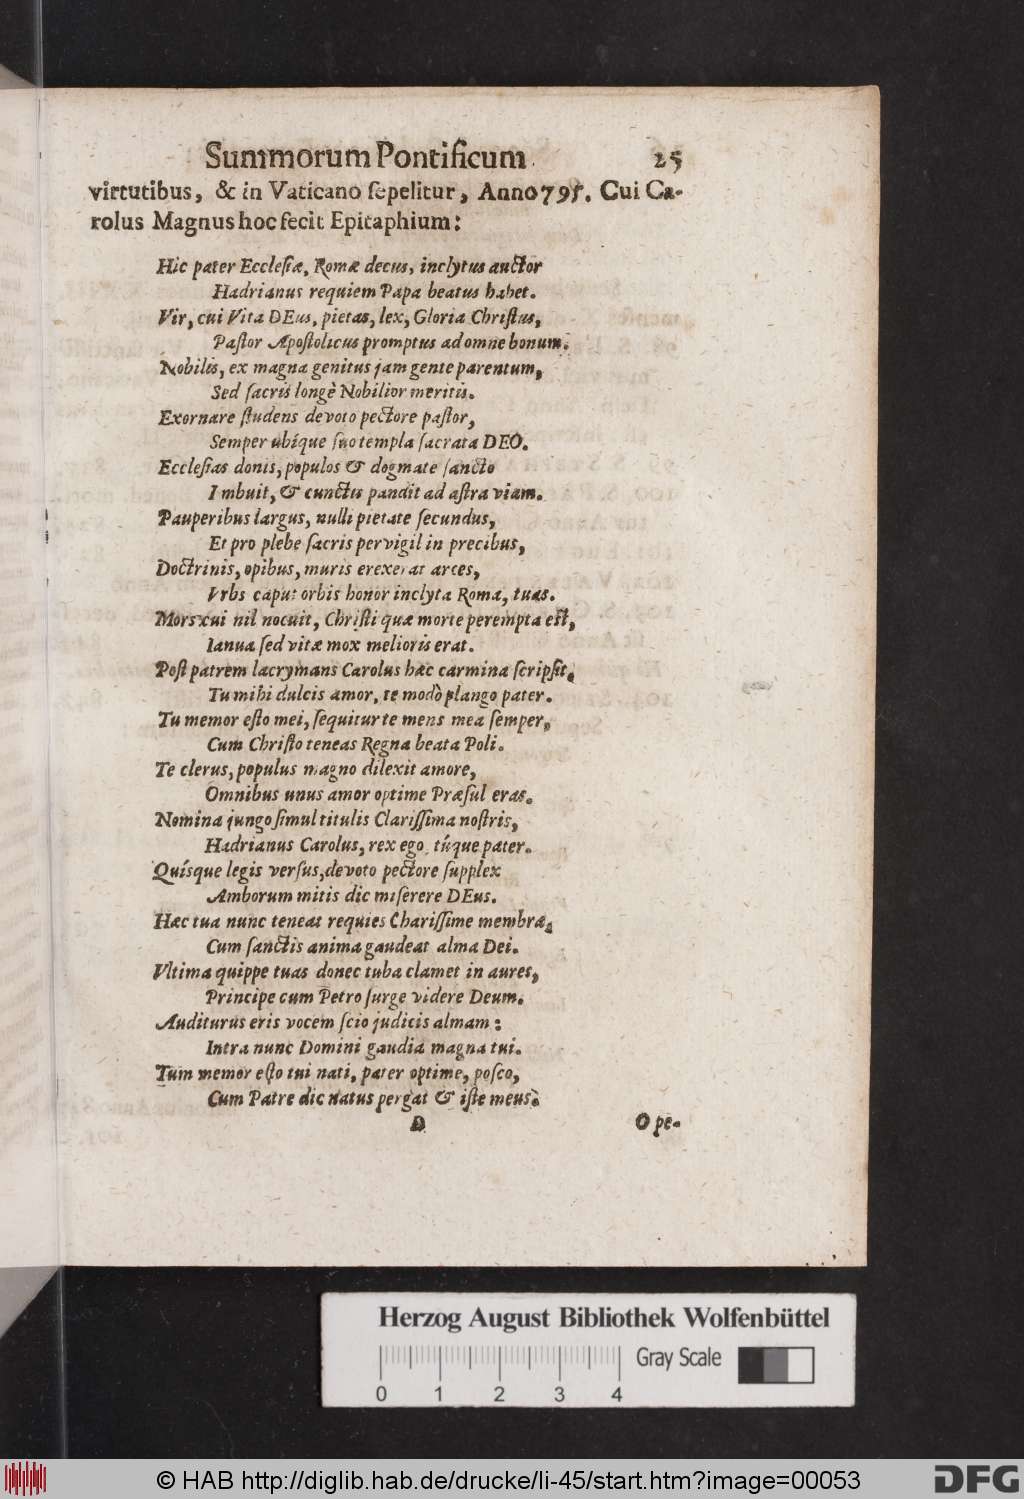 Summorum Pontificum 25
virtutibus, & in Vaticano ſepelitur, Anno 795. Cui Ca-
rolus Magnus hoc fecit Epitaphium:
Hic pater Eccleſiæ, Romæ decus, inclytus auctor
Hadrianus requiem Papa beatus habet.
Vir, cui Vita DEus, pietas, lex, Gloria Chriſtus,
Paſtor Apoſtolicus promptus ad omne bonum.
Nobilis, ex magna genitus jam gente parentum,
Sed ſacris longè Nobilior meritis.
Exornare ſtudens devoto pectore paſtor,
Semper ubíque ſuo templa ſacrata DEO.
Eccleſias donis, populos & dogmate ſancto
Imbuit, & cunctis pandit ad aſtra viam.
Pauperibus largus, nulli pietate ſecundus,
Et pro plebe ſacris pervigil in precibus,
Doctrinis, opibus, muris erexerat arces,
Vrbs caput orbis honor inclyta Roma, tuas.
Mors cui nil nocuit, Chriſti quæ morte perempta eſt,
Ianua ſed vitæ mox melioris erat.
Poſt patrem lacrymans Carolus hæc carmina ſcripſit,
Tu mihi dulcis amor, te modò plango pater.
Tu memor eſto mei, ſequitur te mens mea ſemper,
Cum Chriſto teneas Regna beata Poli.
Te clerus, populus magno dilexit amore,
Omnibus unus amor optime Præſul eras.
Nomina jungo ſimul titulis Clariſſima noſtris,
Hadrianus Carolus, rex ego, túque pater.
Quíſque legis verſus, devoto pectore ſupplex
Amborum mitis dic miſerere DEus.
Hæc tua nunc teneat requies Chariſſime membra,
Cum ſanctis anima gaudeat alma Dei.
Vltima quippe tuas donec tuba clamet in aures,
Principe cum Petro ſurge videre Deum.
Auditurus eris vocem ſcio judicis almam:
Intra nunc Domini gaudia magna tui.
Tum memor eſto tui nati, pater optime, poſco,
Cum Patre dic natus pergat & iſte meus.
D O pe-
Herzog August Bibliothek Wolfenbüttel
Gray Scale
0 1 2 3 4
© HAB http://diglib.hab.de/drucke/li-45/start.htm?image=00053
DFG